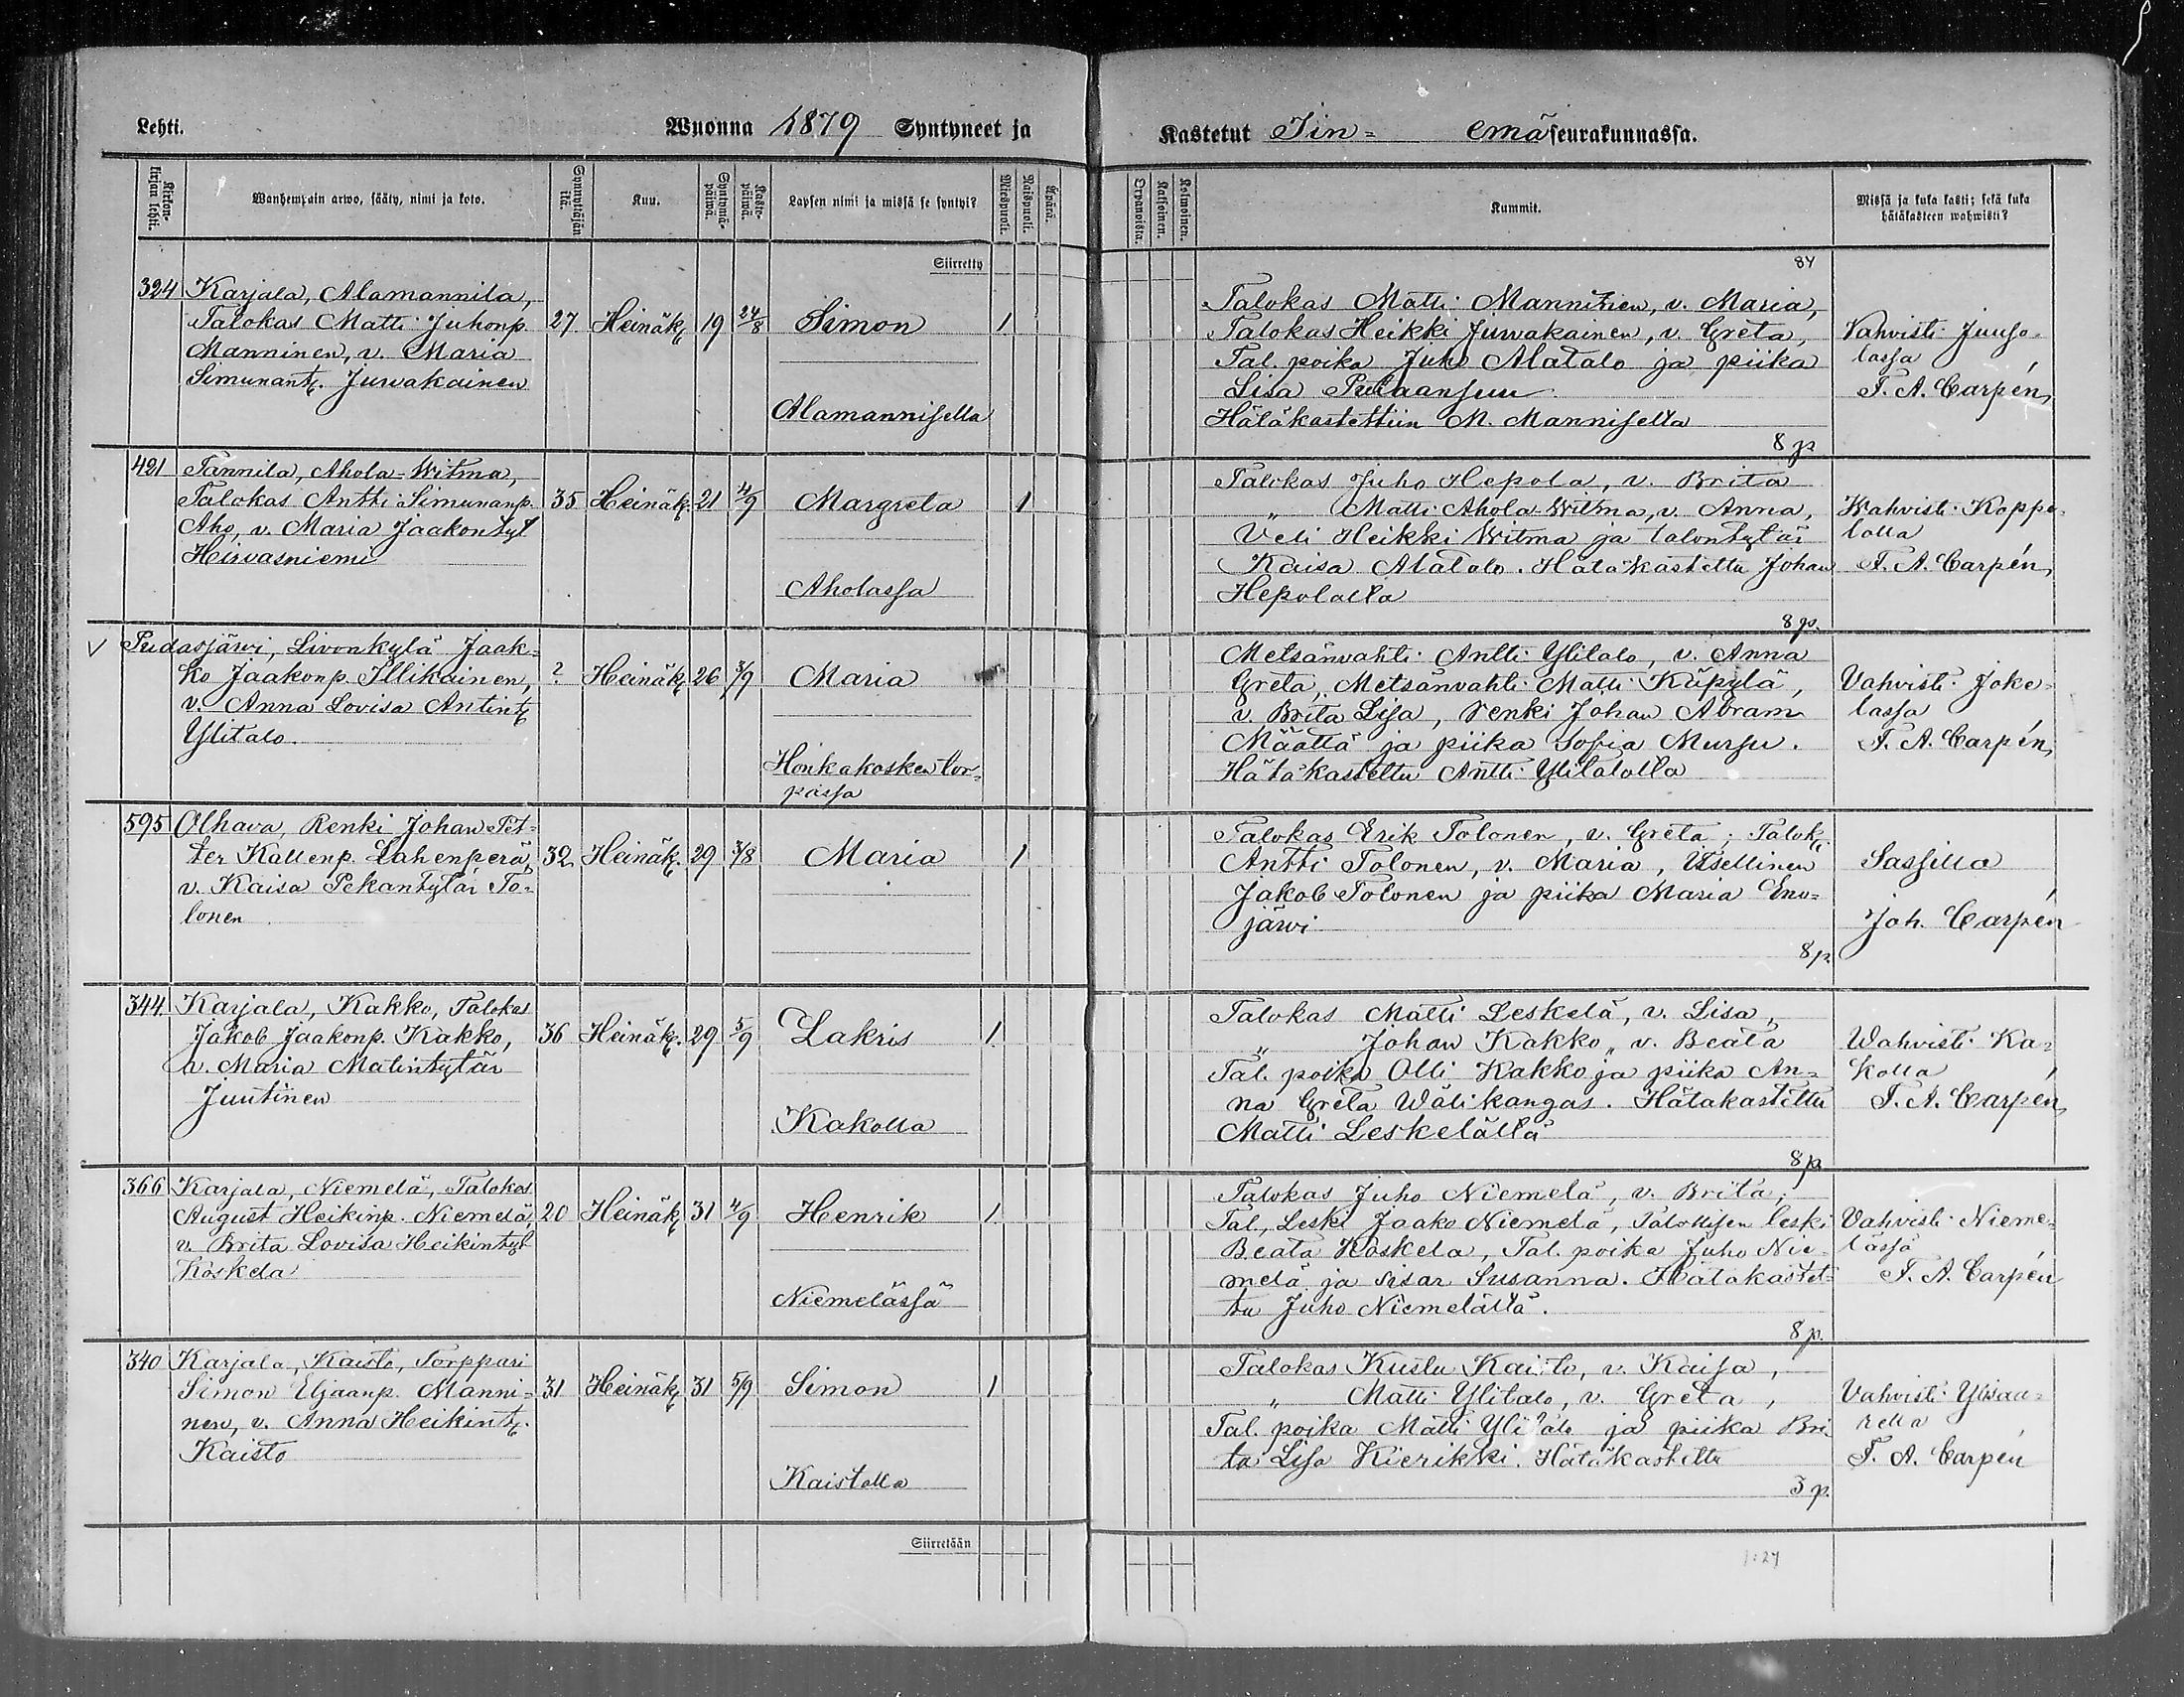 Lehti.
Wuonna 1879 Syntyneet ja
Kastetut Iin= emäseurakunnassa.
Kirkon-kirjan lehti.
Wanhempain arwo, sääty, nimi ja koto.
Synnyttäjän ikä.
Kuu.
Syntymä-päiwä.
Kaste-päiwä.
Lapsen nimi ja missä se syntyi?
Miespuoli.
Naispuoli.
Äpärä.
Orpanoista.
Kaksoinen.
Kolmoinen.
Kummit.
Missä ja kuka kasti; sekä kuka
hätäkasteen wahwisti?
Siirretty
84
324 Karjala, Alamannila,
Talokas Matti Juhonp.
Manninen, v. Maria
Simunant. Juwakainen
27. Heinäk. 19 24/8 Simon 1
Alamannisella
Talokas Matti Manninen, v. Maria,
Talokas Heikki Juwakainen, v. Greta,
Tal. poika Juho Alatalo ja piika
Lisa
Hätäkastettiin M. Mannisella
8 p
Vahvisti Juuso-
lassa
F. A. Carpén
421 Tannila, Ahola-Witma,
Talokas Antti Simunanp.
Aho, v. Maria Jaakontyt
Hirvasniemi
35 Heinäk. 21 4/9 Margreta 1
Aholassa
Talokas Juho Hepola, v. Brita
" Matti Ahola-Witma, v. Anna,
Veli Heikki Witma ja talontytär
Kaisa Alatalo. Hätäkastettu Johan
Hepolalla
8 p.
Wahvisti Koppe-
lolla
F. A. Carpén
v Pudasjärwi, Livonkylä Jaak-
ko Jaakonp. Illikainen,
v. Anna Lovisa Antint
Ylitalo.
? Heinäk 26 3/9 Maria
Honkakosken tor-
passa
Metsänvahti Antti Ylitalo, v. Anna
Greta, Metsänvahti Matti Küpylä,
v. Brita Lisa, renki Johan Abram
Määttä ja piika Sofia Mursu.
Hätäkastettu Antti Ylitalolla
Vahvisti Joke-
lassa
F. A. Carpén
595 Olhava, Renki Johan Pet-
ter Kallenp. Lahenperä,
v. Kaisa Pekantytär To-
lonen
32 Heinäk. 29 3/8 Maria 1
Talokas Erik Tolonen, v. Greta; Talok.
Antti Tolonen, v. Maria, Itsellinen
Jakob Tolonen ja piika Maria Eno-
järwi
8 p.
Sassilla
Joh. Carpén
344 Karjala, Kakko, Talokas
Jakob Jaakonp. Kakko,
v. Maria Matintytär
Juutinen
36 Heinäk. 29 5/9 Zakris 1
Kakolla
Talokas Matti Leskelä, v. Lisa,
" Johan Kakko, v. Beata
Tal. poika Olli Kakko ja piika An-
na Greta Wälikangas. Hätäkastettu
Matti Leskelältä
8 p
Wahvisti Ka-
kolla
F. A. Carpén
366 Karjala, Niemelä, Talokas
August Heikinp. Niemelä,
v. Brita Lovisa Heikintyt
Koskela
20 Heinäk 31 4/9 Henrik 1.
Niemelässä
Talokas Juho Niemelä, v. Brita,
Tal. Leski Jaako Niemelä, Talollisen leski
Beata Koskela, Tal. poika Juho Nie-
melä ja sisar Susanna. Hätäkastet-
tu Juho Niemelältä.
8 p.
Vahvisti Nieme-
lässä
F. A. Carpén
340 Karjala, Kaisto, Torppari
Simon Eljaanp. Manni-
nen, v. Anna Heikint.
Kaisto
31 Heinäk 31 5/9 Simon 1
Kaistolla
Talokas Kustu Kaisto, v. Kaisa,
" Matti Ylitalo, v. Greta,
Tal. poika Matti Ylitalo ja piika Bri-
ta Lisa Kierikki. Hätäkastettu
3 p.
Vahvisti Ylisau-
rella
F. A. Carpén
Siirretään
1:27